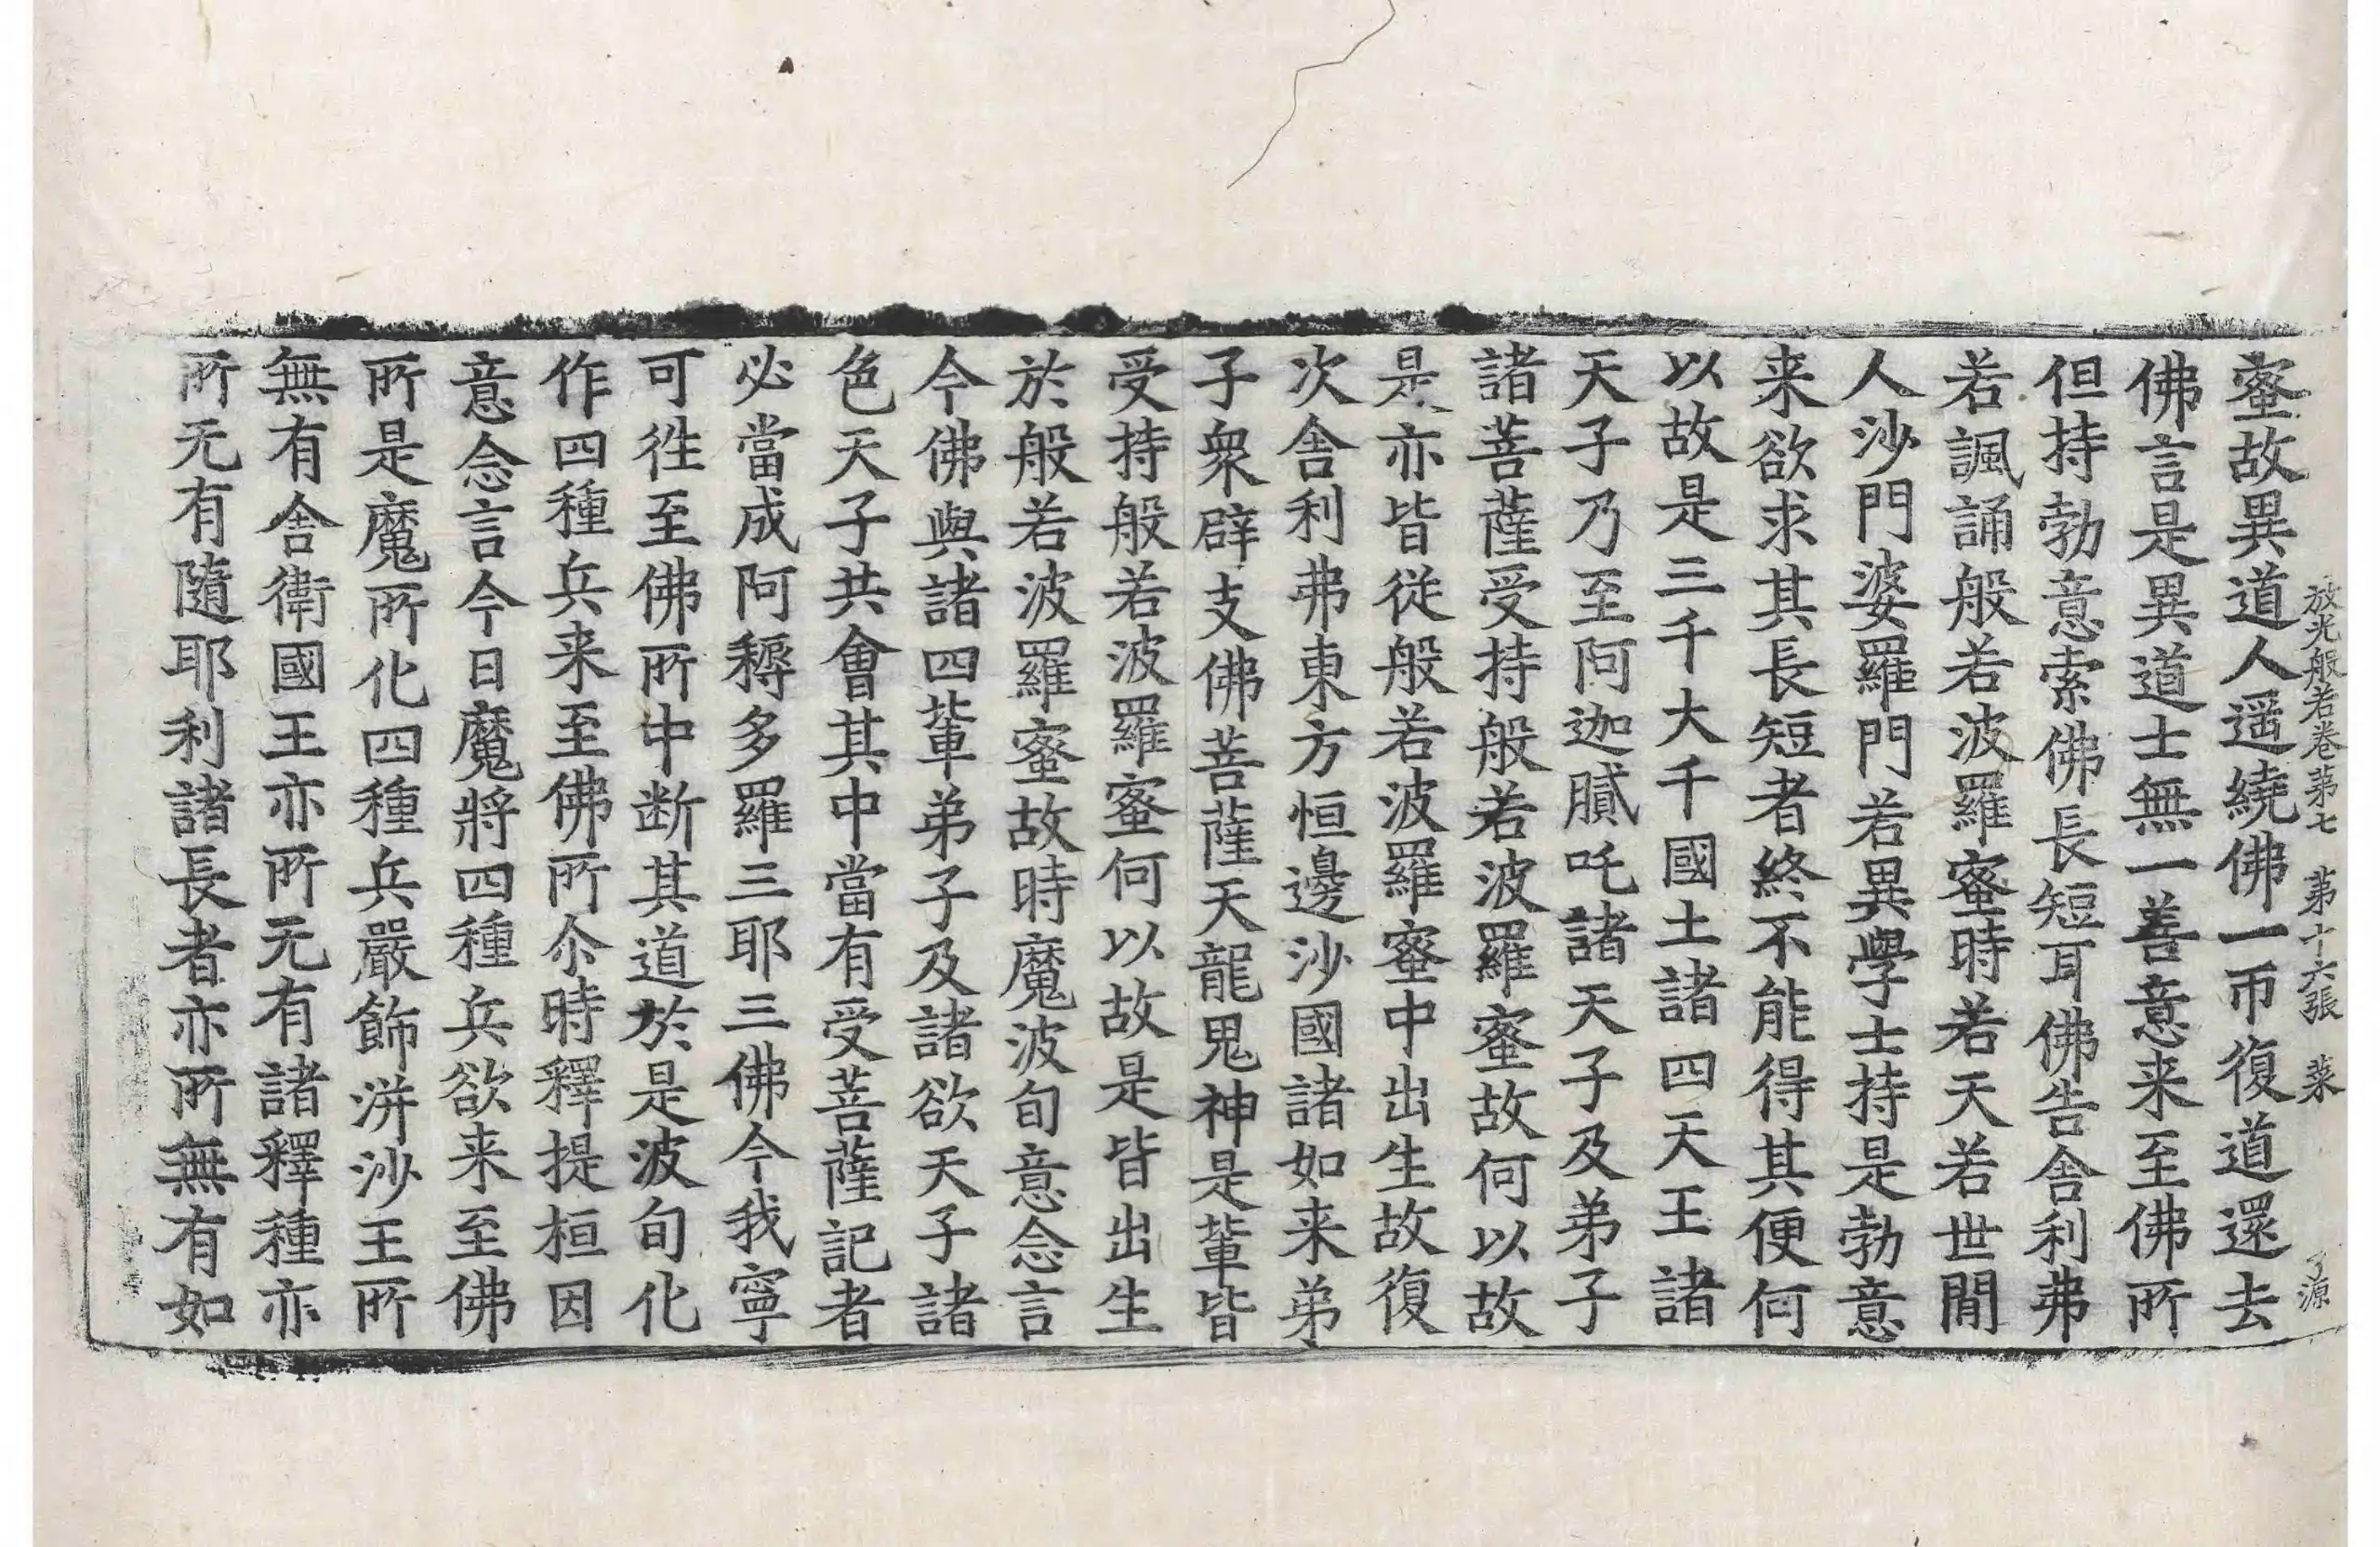 放光般若卷第七 第十六張 菜 了源
蜜故異道人遥繞佛一帀復道還去
佛言是異道士無一善意来至佛所
但持勃意索佛長短耳佛告舎利弗
若諷誦般若波羅蜜時若天若世閒
人沙門婆羅門若異學士持是勃意
来欲求其長短者終不能得其便何
以故是三千大千國土諸四天王諸
天子乃至阿迦膩吒諸天子及弟子
諸菩薩受持般若波羅蜜故何以故
是亦皆従般若波羅蜜中出生故復
次舎利弗東方恒邊沙國諸如来弟
子衆辟支佛菩薩天龍鬼神是輩皆
受持般若波羅蜜何以故是皆出生
於般若波羅蜜故時魔波旬意念言
今佛與諸四輩弟子及諸欲天子諸
色天子共會其中當有受菩薩記者
必當成阿耨多羅三耶三佛今我寧
可徃至佛所中断其道於是波旬化
作四種兵来至佛所尒時釋提桓因
意念言今日魔將四種兵欲来至佛
所是魔所化四種兵嚴飾洴沙王所
無有舎衛國王亦所无有諸釋種亦
所无有隨耶利諸長者亦所無有如